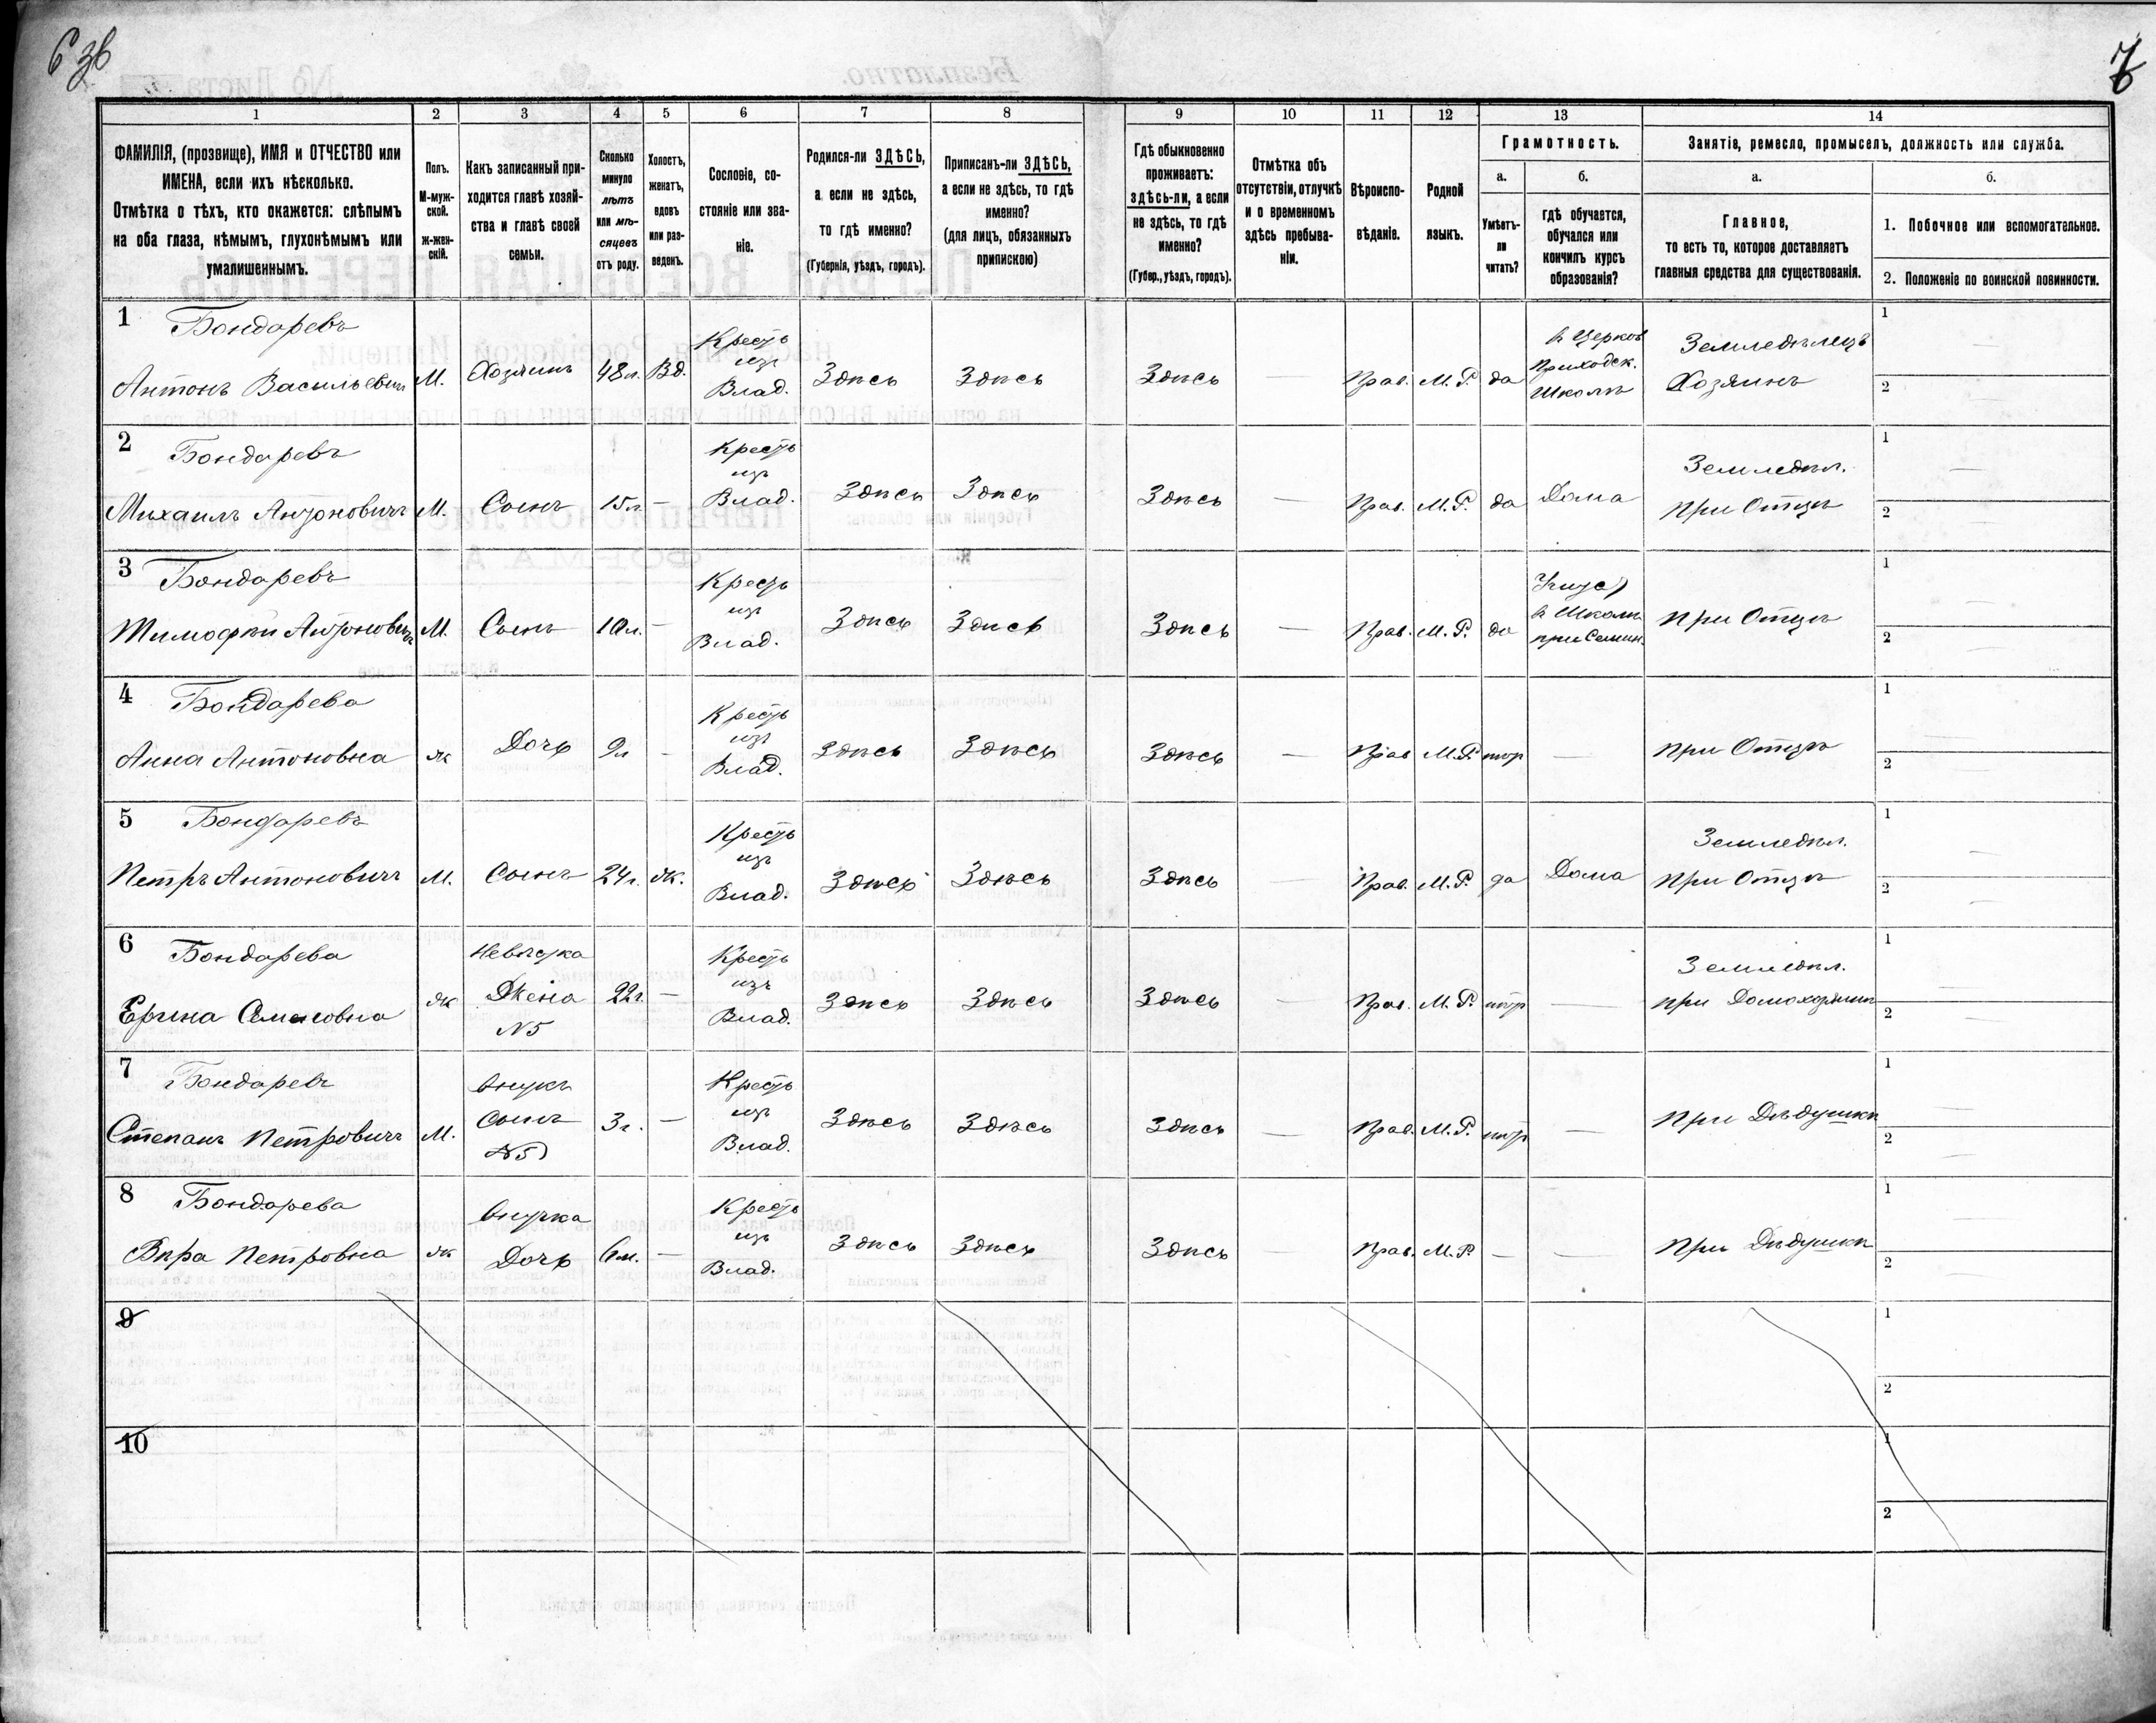 6 зв
7
1 2 3 4 5 6 7 8 9 10 11 12 13 14
ФАМИЛІЯ, (прозвище), ИМЯ и ОТЧЕСТВО или
ИМЕНА, если ихъ нѣсколько.
Отмѣтка о тѣхъ, кто окажется: слѣпымъ
на оба глаза, нѣмымъ, глухонѣмымъ или
умалишеннымъ.
Полъ.
М-муж-
ской.
ж-жен-
скій.
Какъ записанный при-
ходится главѣ хозяй-
ства и главѣ своей
семьи.
Сколько
минуло
лѣтъ
или мѣ-
сяцевъ
отъ роду.
Холостъ,
женатъ,
вдовъ
или раз-
веденъ.
Сословіе, со-
стояніе или зва-
ніе.
Родился-ли ЗДѢСЬ,
а если не здѣсь,
то гдѣ именно?
(Губернія, уѣздъ, городъ).
Приписанъ-ли ЗДѢСЬ,
а если не здѣсь, то гдѣ
именно?
(для лицъ, обязанныхъ
припискою)
Гдѣ обыкновенно
проживаетъ:
здѣсь-ли, а если
не здѣсь, то гдѣ
именно?
(Губер., уѣздъ, городъ).
Отмѣтка объ
отсутствіи, отлучкѣ
и о временномъ
здѣсь пребыва-
ніи.
Вѣроиспо-
вѣданіе.
Родной
языкъ.
Грамотность.
а.
Умѣетъ-
ли
читать?
б.
гдѣ обучается,
обучался или
кончилъ курсъ
образованія?
Занятіе, ремесло, промыселъ, должность или служба.
а.
Главное,
то есть то, которое доставляетъ
главныя средства для существованія.
б.
1. Побочное или вспомогательное.
2. Положеніе по воинской повинности.
1
Бондаревъ
Антонъ Васильевичъ
М.
Хозяинъ
48 л.
Вд.
Кресть
изъ
Влад.
Здѣсь
Здѣсь
Здѣсь
—
Прав.
М. Р.
да
в Церков
Приходск.
Школѣ
Земледѣлецъ
Хозяинъ
1
2
2
Бондаревъ
Михаилъ Антоновичъ
М.
Сынъ
15 л.
—
Кресть
изъ
Влад.
Здѣсь
Здѣсь
Здѣсь
—
Прав.
М. Р.
да
Дома
Земледѣл.
при Отцѣ
1
2
3
Бондаревъ
Тимофѣй Антоновичъ
М.
Сынъ
10 л.
—
Кресть
изъ
Влад.
Здѣсь
Здѣсь
Здѣсь
—
Прав.
М. Р.
да
в Школѣ
при Семин.
при Отцѣ
1
2
4
Бондарева
Анна Антоновна
ж
Дочь
9 л
—
Кресть
изъ
Влад.
Здѣсь
Здѣсь
Здѣсь
—
Прав
М. Р.
—
при Отцѣ
1
2
5
Бондаревъ
Петръ Антоновичъ
М.
Сынъ
24 г.
ж.
Кресть
изъ
Влад.
Здѣсь
Здѣсь
Здѣсь
—
Прав.
М. Р.
да
Дома
Земледѣл.
при Отцѣ
1
2
6
Бондарева
Ерина
ж
Невѣстка
Жена
N5
22 г.
—
Кресть
изъ
Влад.
Здѣсь
Здѣсь
Здѣсь
—
Прав.
М. Р.
—
Земледѣл.
при Домохозяинѣ
1
2
7
Бондаревъ
Степанъ Петровичъ
М.
внукъ
сынъ
N5
3 г.
—
Кресть
изъ
Влад.
Здѣсь
Здѣсь
Здѣсь
—
Прав.
М. Р.
—
при Дѣдушкѣ
1
2
8
Бондарева
Вѣра Петровна
ж
внучка
Дочь
6 м.
—
Кресть
изъ
Влад.
Здѣсь
Здѣсь
Здѣсь
Прав.
М. Р.
—
—
при Дѣдушкѣ
1
2
9
1
2
10
1
2